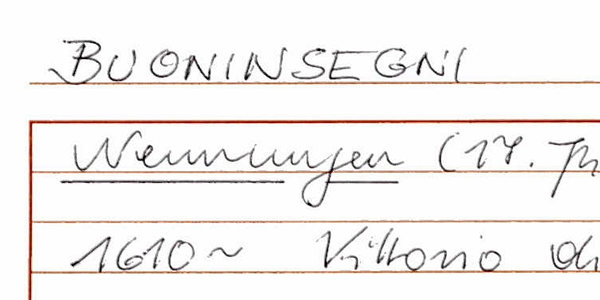 BUONINSEGNI
Nennungen (17. Jh
1610~ Vittorio di